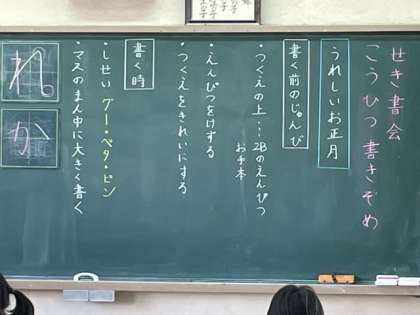 せき書会
こうひつ書きぞめ
うれしいお正月
書く前のじゅんび
・つくえの上…2Bのえんぴつ
お手本
・えんぴつをけずる
・つくえをきれいにする
書く時
・しせい グー・ペタ・ピン
・マスのまん中に大きく書く
れ
か